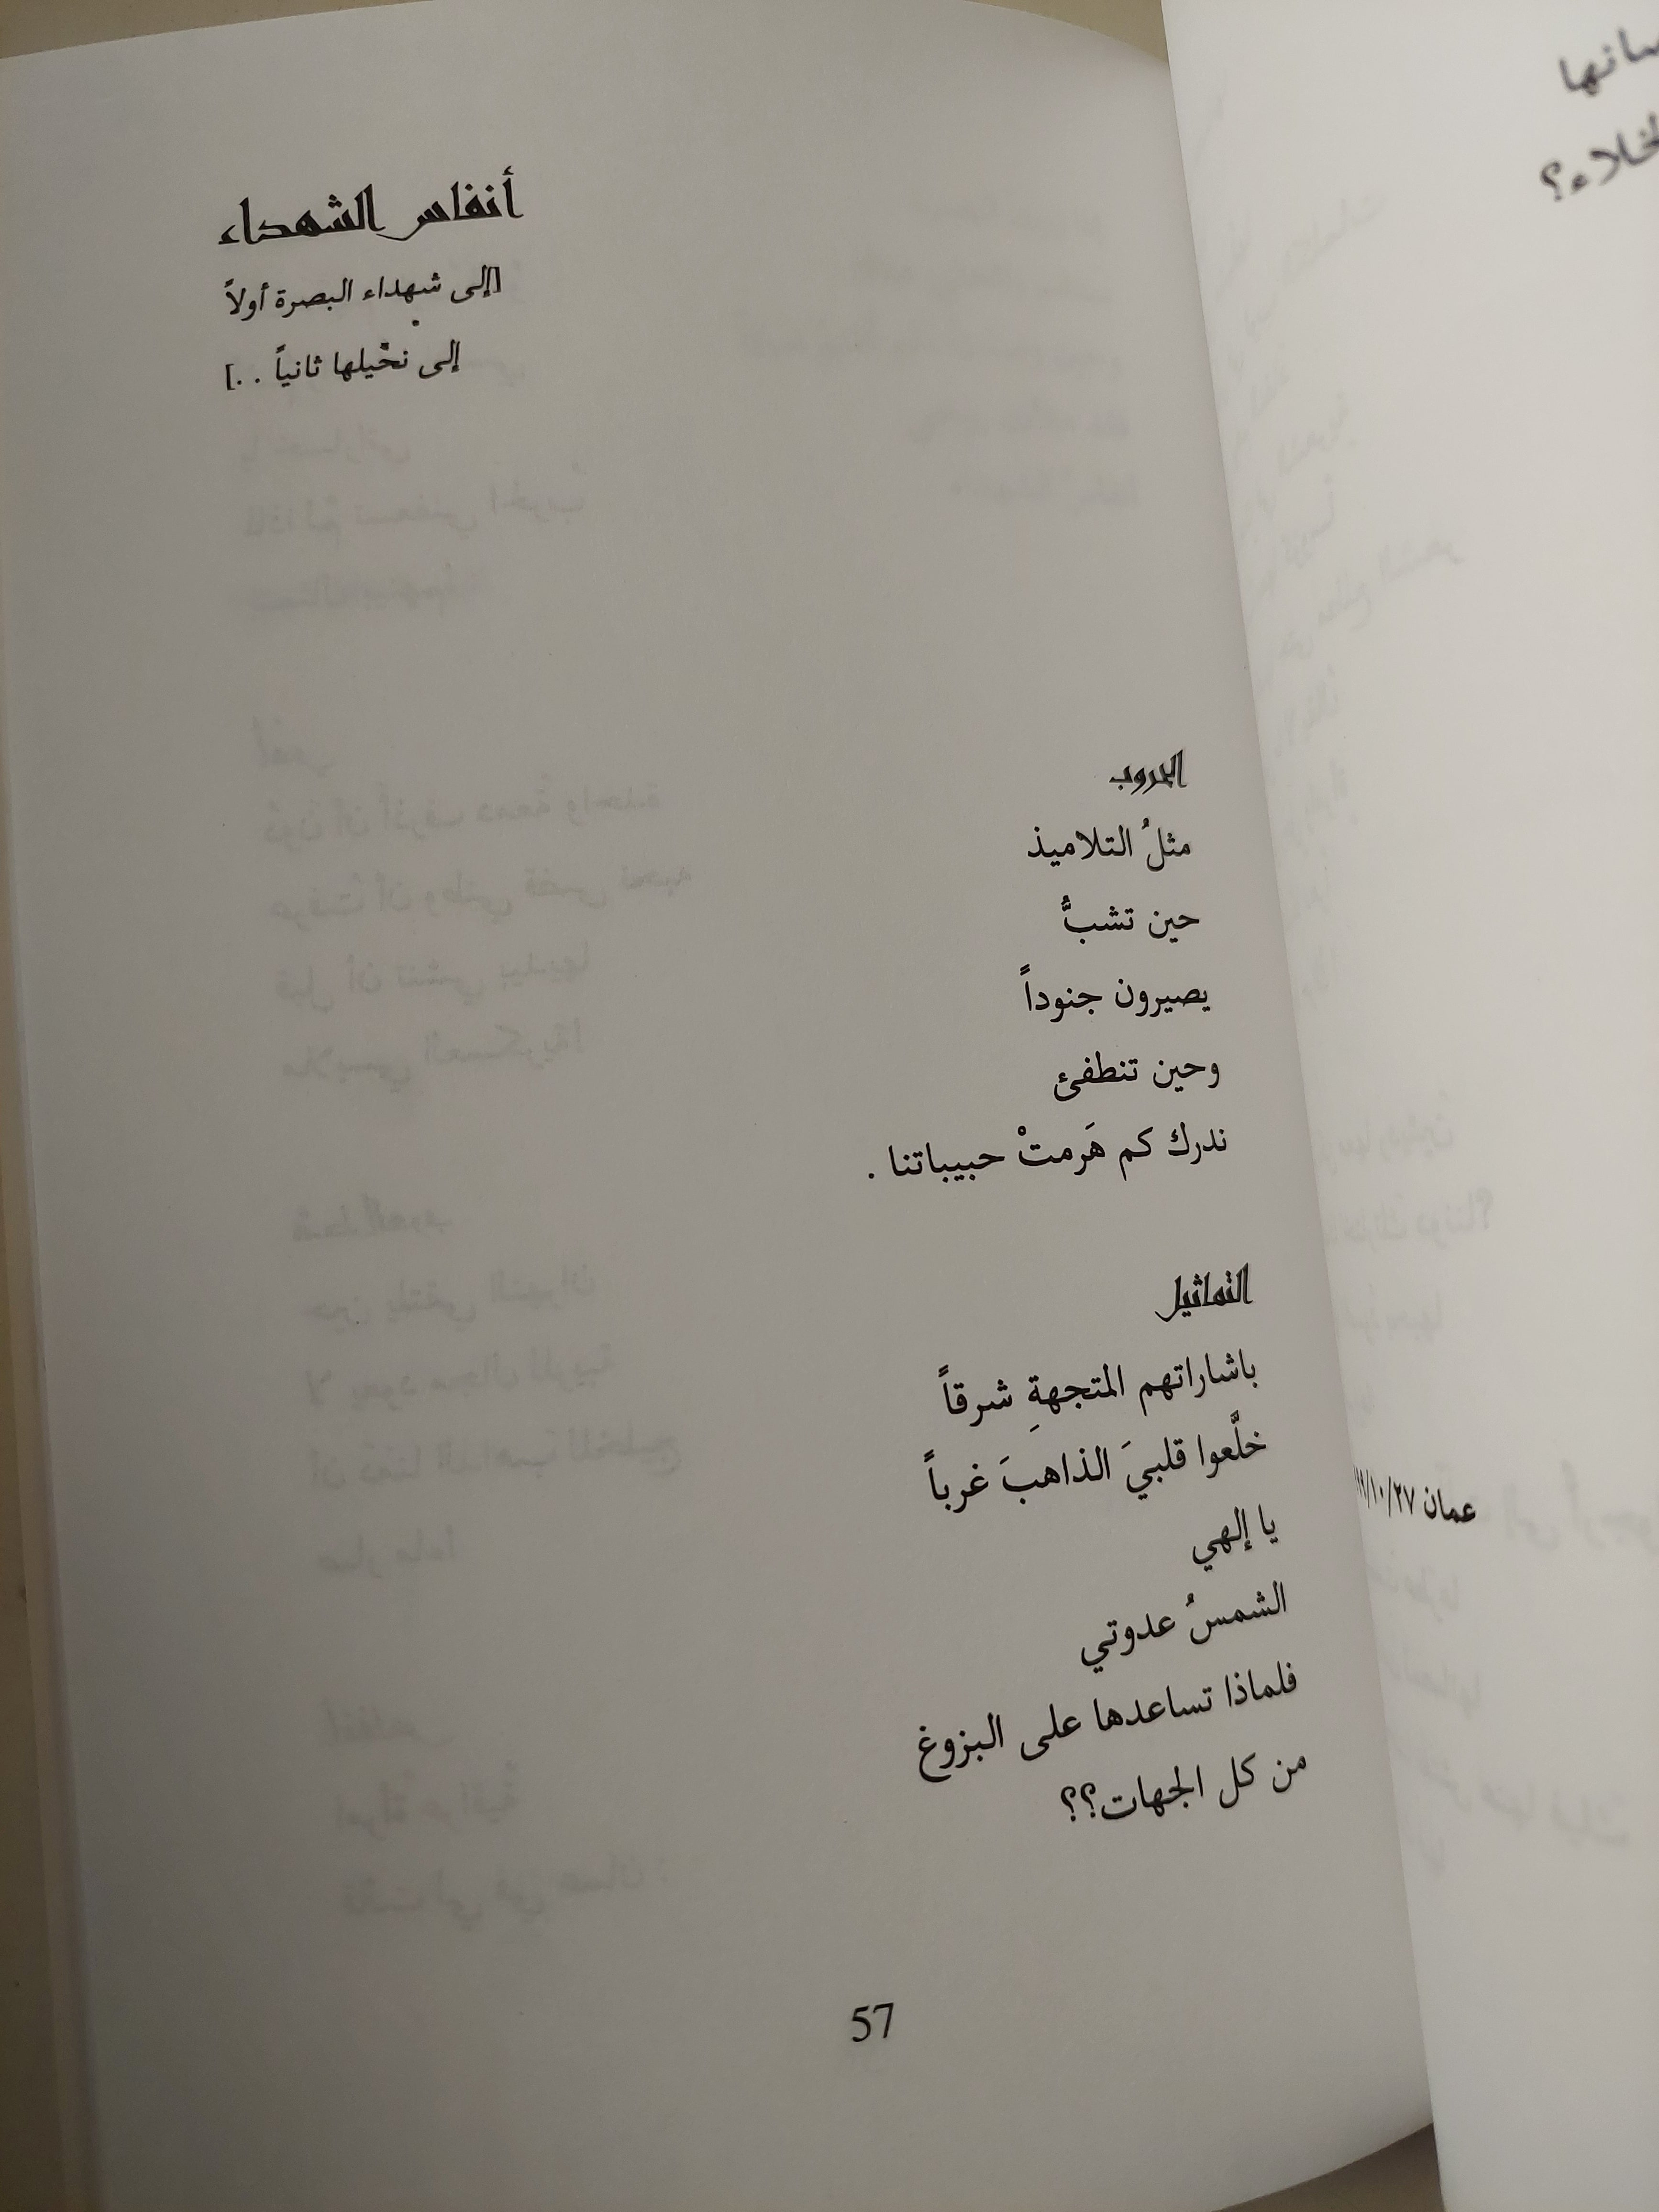 أنفاس الشهداء
[إلى شهداء البصرة أولاً
إلى نخيلها ثانياً . .]
الحروب
مثلُ التلاميذ
حين تشبُّ
يصيرون جنوداً
وحين تنطفئ
ندرك كم هَرمتْ حبيباتنا .
التماثيل
باشاراتهم المتجهةِ شرقاً
خلَّعوا قلبيَ الذاهبَ غرباً
يا إلهي
الشمسُ عدوتي
فلماذا تساعدها على البزوغ
من كل الجهات؟؟
57
الخلاء؟
عمان ٢٧/١٠/